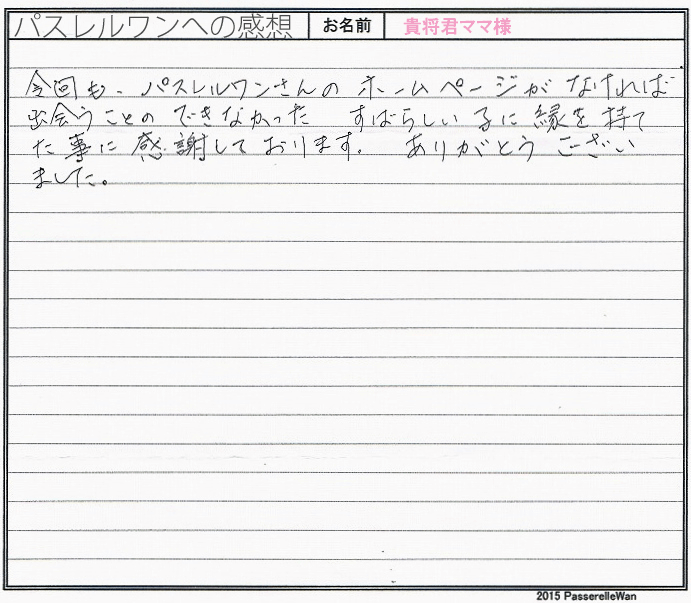 パスレルワンへの感想 お名前 貴将君ママ様
今回も、パスレルワンさんのホームページがなければ
出会うことのできなかった すばらしい子に縁を持て
た事に感謝しております。 ありがとうござい
ました。
2015 PasserelleWan